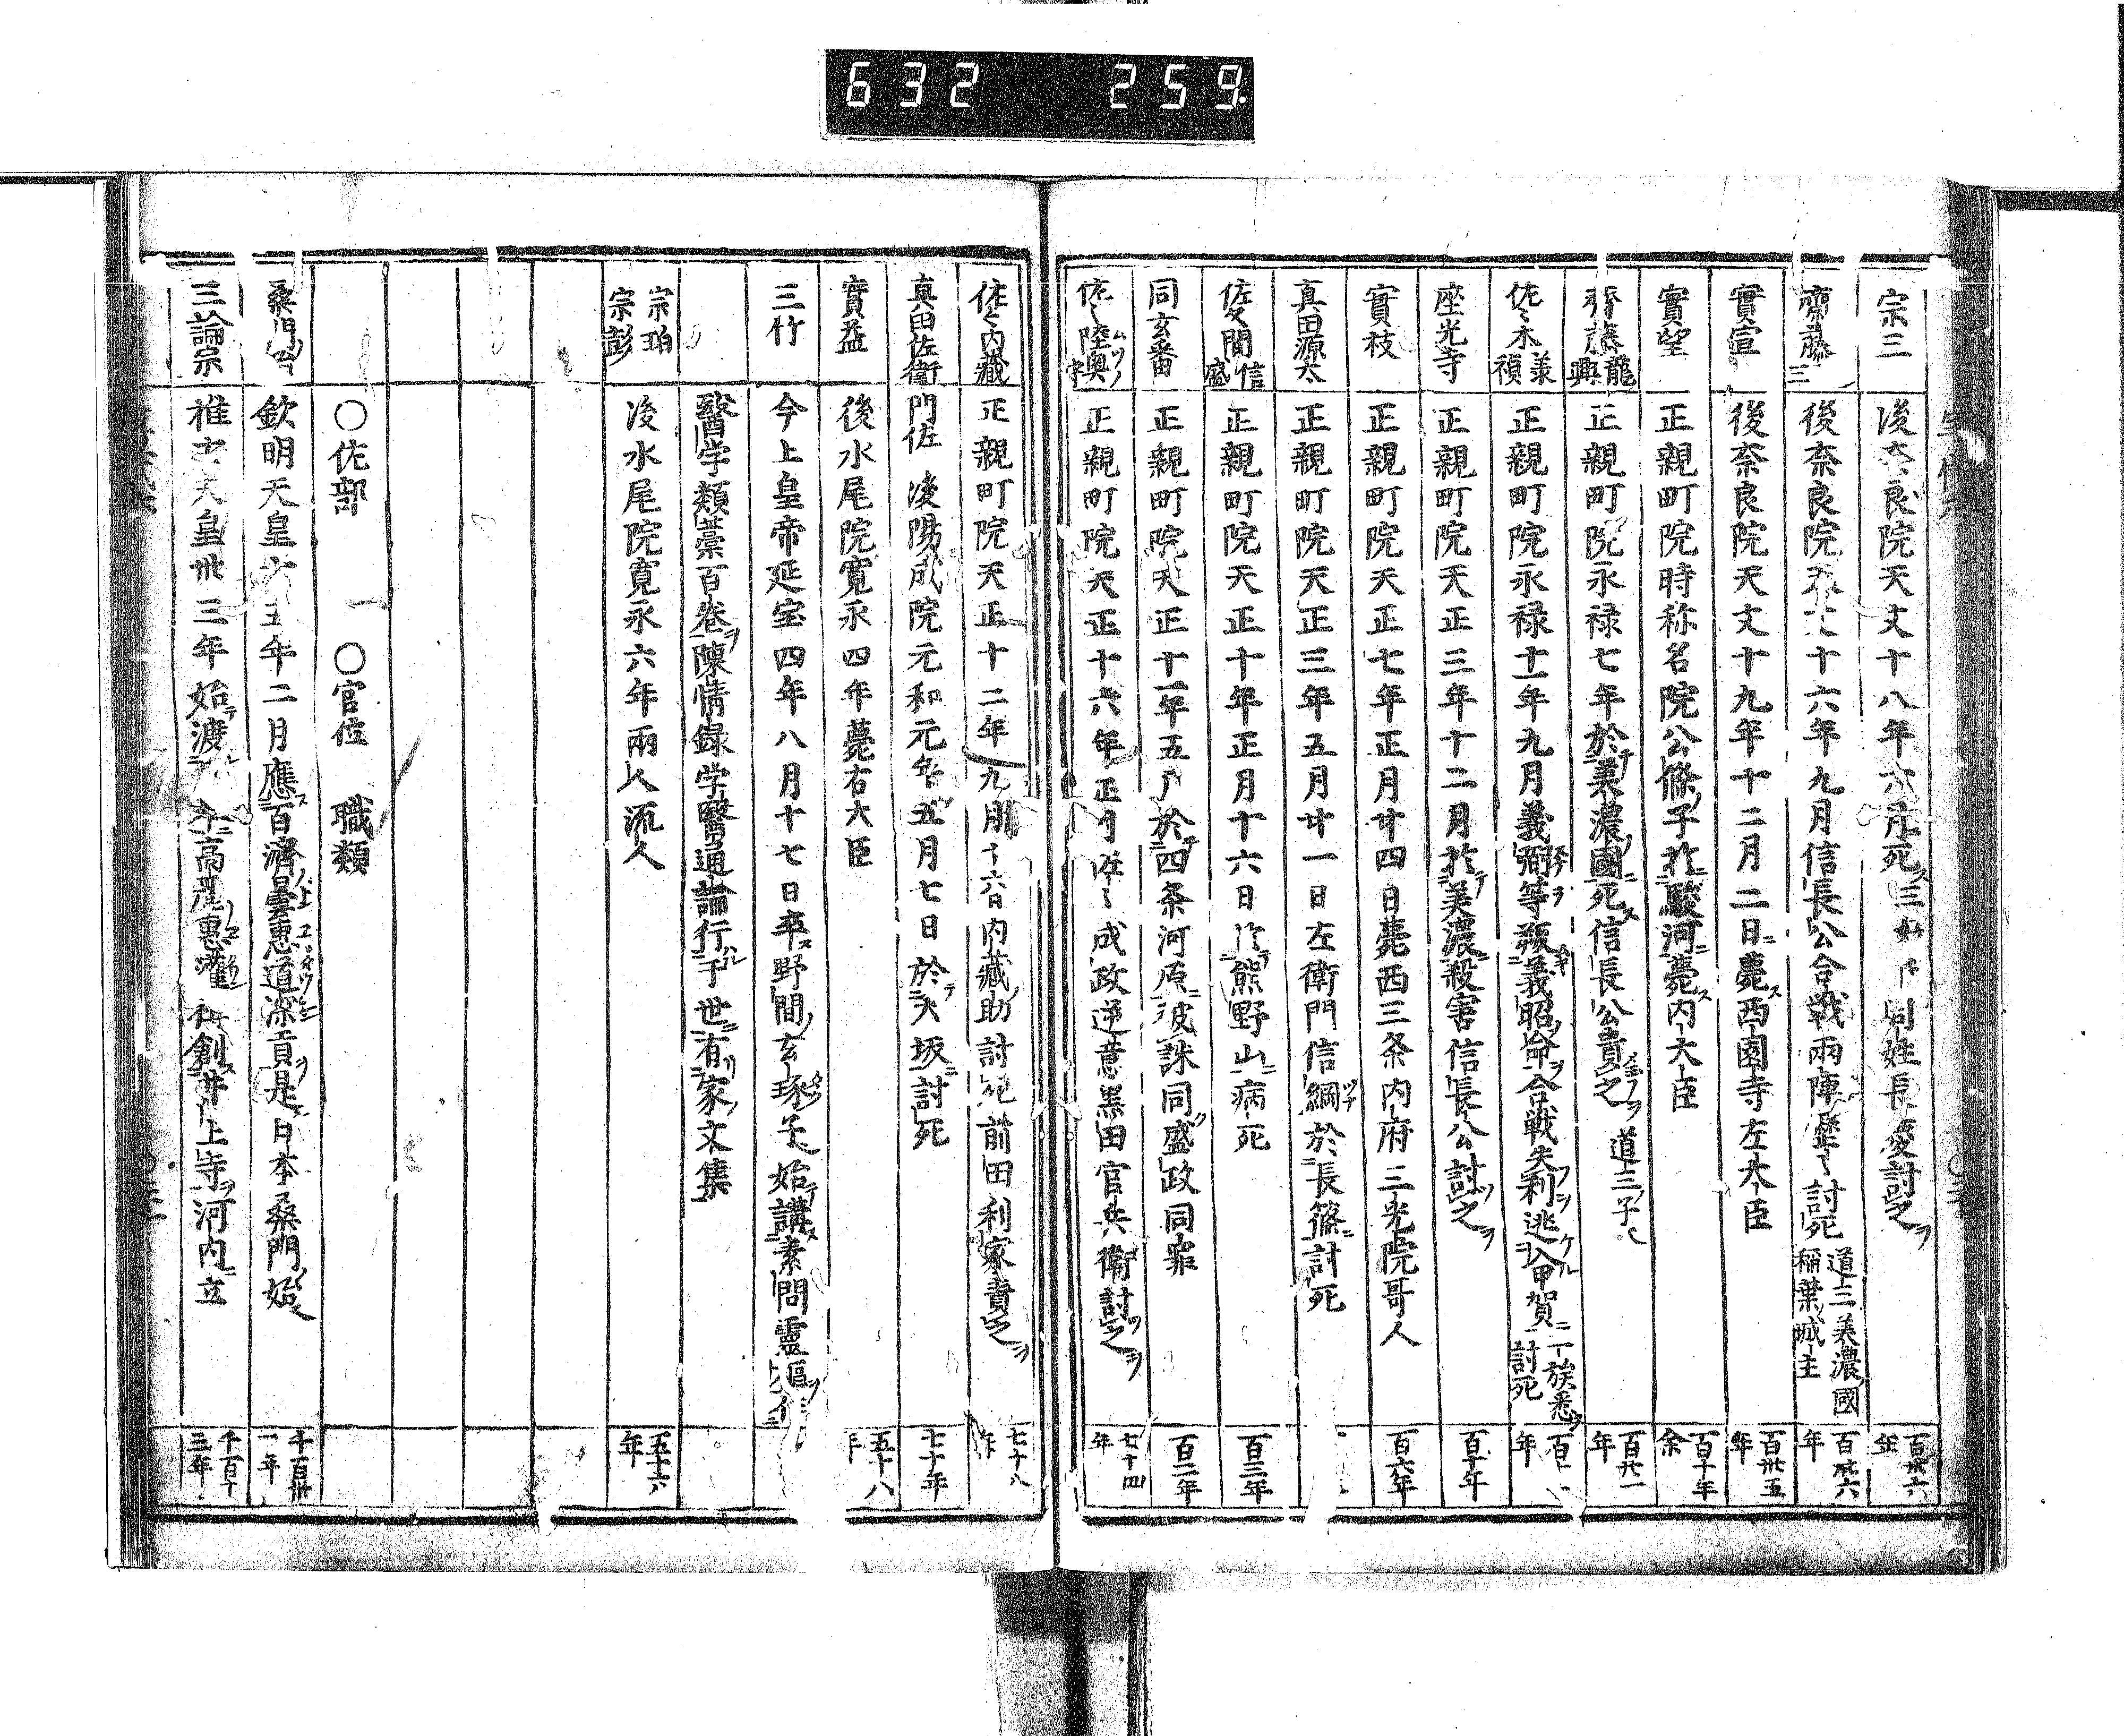 632 259
宗三 後奈良院天文十八年六月死ス三好 同姓長慶討之ヲ 百卅六年
齋藤三 後奈良院天文十六年九月信長公合戦両陣歴々討死 道三美濃國稲葉城主 百卅六年
實宣 後奈良院天文十九年十二月二日ニ薨ス西園寺左大臣 百卅五年
實望 正親町院時称名院公條ノ子於駿河ニ薨ス内大臣 百十年余
齊藤龍興 正親町院永禄七年於テ美濃ノ國ニ死ス信長公責之ヲ 道三ノ子 百廿一年
佐々木義禎 正親町院永禄十一年九月義弼等叛義昭ノ命ヲ合戦失利逃入甲賀ニ一族悉ク討死 年
座光寺 正親町院天正三年十二月於テ美濃ニ殺害信長公討之ヲ 百十年
實枝 正親町院天正七年正月廿四日薨西三条内府三光院哥人 百六年
真田源太 正親町院天正三年五月廿一日左衛門信綱於長篠ニ討死
佐久間信盛 正親町院天正十年正月十六日於テ熊野山ニ病死 百三年
同玄番 正親町院天正十一年五月於テ四条河原ニ被誅同ク盛政同罪 百二年
佐々陸奥守 正親町院天正十六年正月佐々成政逆意黒田官兵衛討之ヲ 七十四年
佐々内藏 正親町院天正十二年九月十六日内藏ノ助討死前田利家責之ヲ 七十八年
真田佐衛門佐 後陽成院元和元年五月七日於テ大坂ニ討死 七十年
實益 後水尾院寛永四年薨右大臣 五十八年
三竹 今上皇帝延宝四年八月十七日卒ス野間ノ玄琢子也始テ講ス素問靈樞ヲ
醫学類藁百巻ヲ陳情録学醫通論行ハル于世ニ有リ家ノ文集
宗珀 宗彭 後水尾院寛永六年両人流人 五十六年
〇佐部 一 〇官位 職類
桑門 欽明天皇十五年二月應ス百濟曇惠道深貢ヲ是日本桑門始也 千百卅一年
三論宗 推古天皇卅三年始テ渡 高麗ノ惠灌 創ス井上寺ヲ河内ニ立 千百十三年